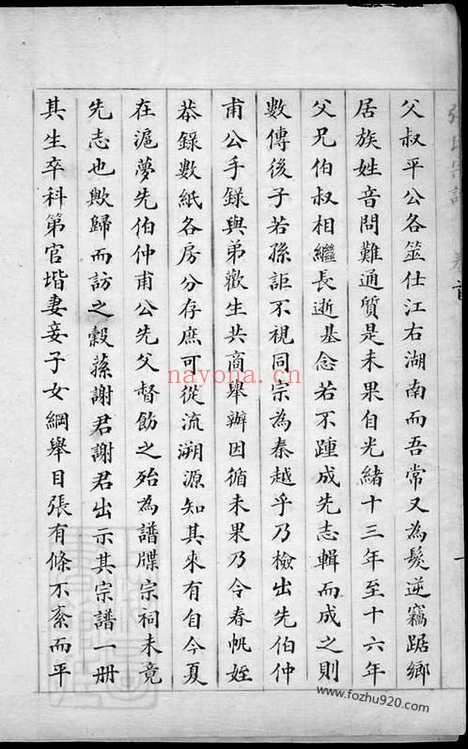 父叔平公各筮仕江右湖南而吾常又為髮逆竄踞鄉
居族姓音問難通質是未果自光緒十三年至十六年
父兄伯叔相繼長逝基念若不踵成先志輯而成之則
數傳後子若孫詎不視同宗為秦越乎乃檢出先伯仲
甫公手錄與弟歡生共商舉辦因循未果乃令春帆姪
恭錄數紙各房分存庶可從流溯源知其來有自今夏
在滬夢先伯仲甫公先父督飭之殆為譜牒宗祠未竟
先志也歟歸而訪之穀蓀謝君謝君出示其宗譜一冊
其生卒科第官堦妻妾子女綱舉目張有條不紊而平
張氏宗譜 卷首
nayona.cn
www.fozhu920.com